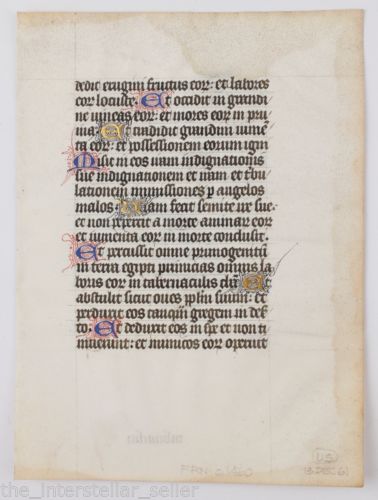 dedit erugini fructus eor: et labores
eor locuste. Et occidit in grandi
ne vineas eor: et mores eor in pru
ina. Et tradidit grandini iumē
ta eor: et possessionem eorum igni
Misit in eos iram indignationis
sue indignationem et iram et tbu
lationem immissiones p angelos
malos. Viam fecit semite ire sue:
et non pepercit a morte aīabꝫ eor
et iumenta eor in morte conclusit.
Et percussit omne primogenitū
in terra egipti primicias omnis la
boris eor in tabernaculis chā. Et
abstulit sicut oves pplm suum: et
perduxit eos tanqm gregem in des
to. Et deduxit eos in spe et non ti
muerunt: et inimicos eor operuit
U.S.
the_interstellar_seller